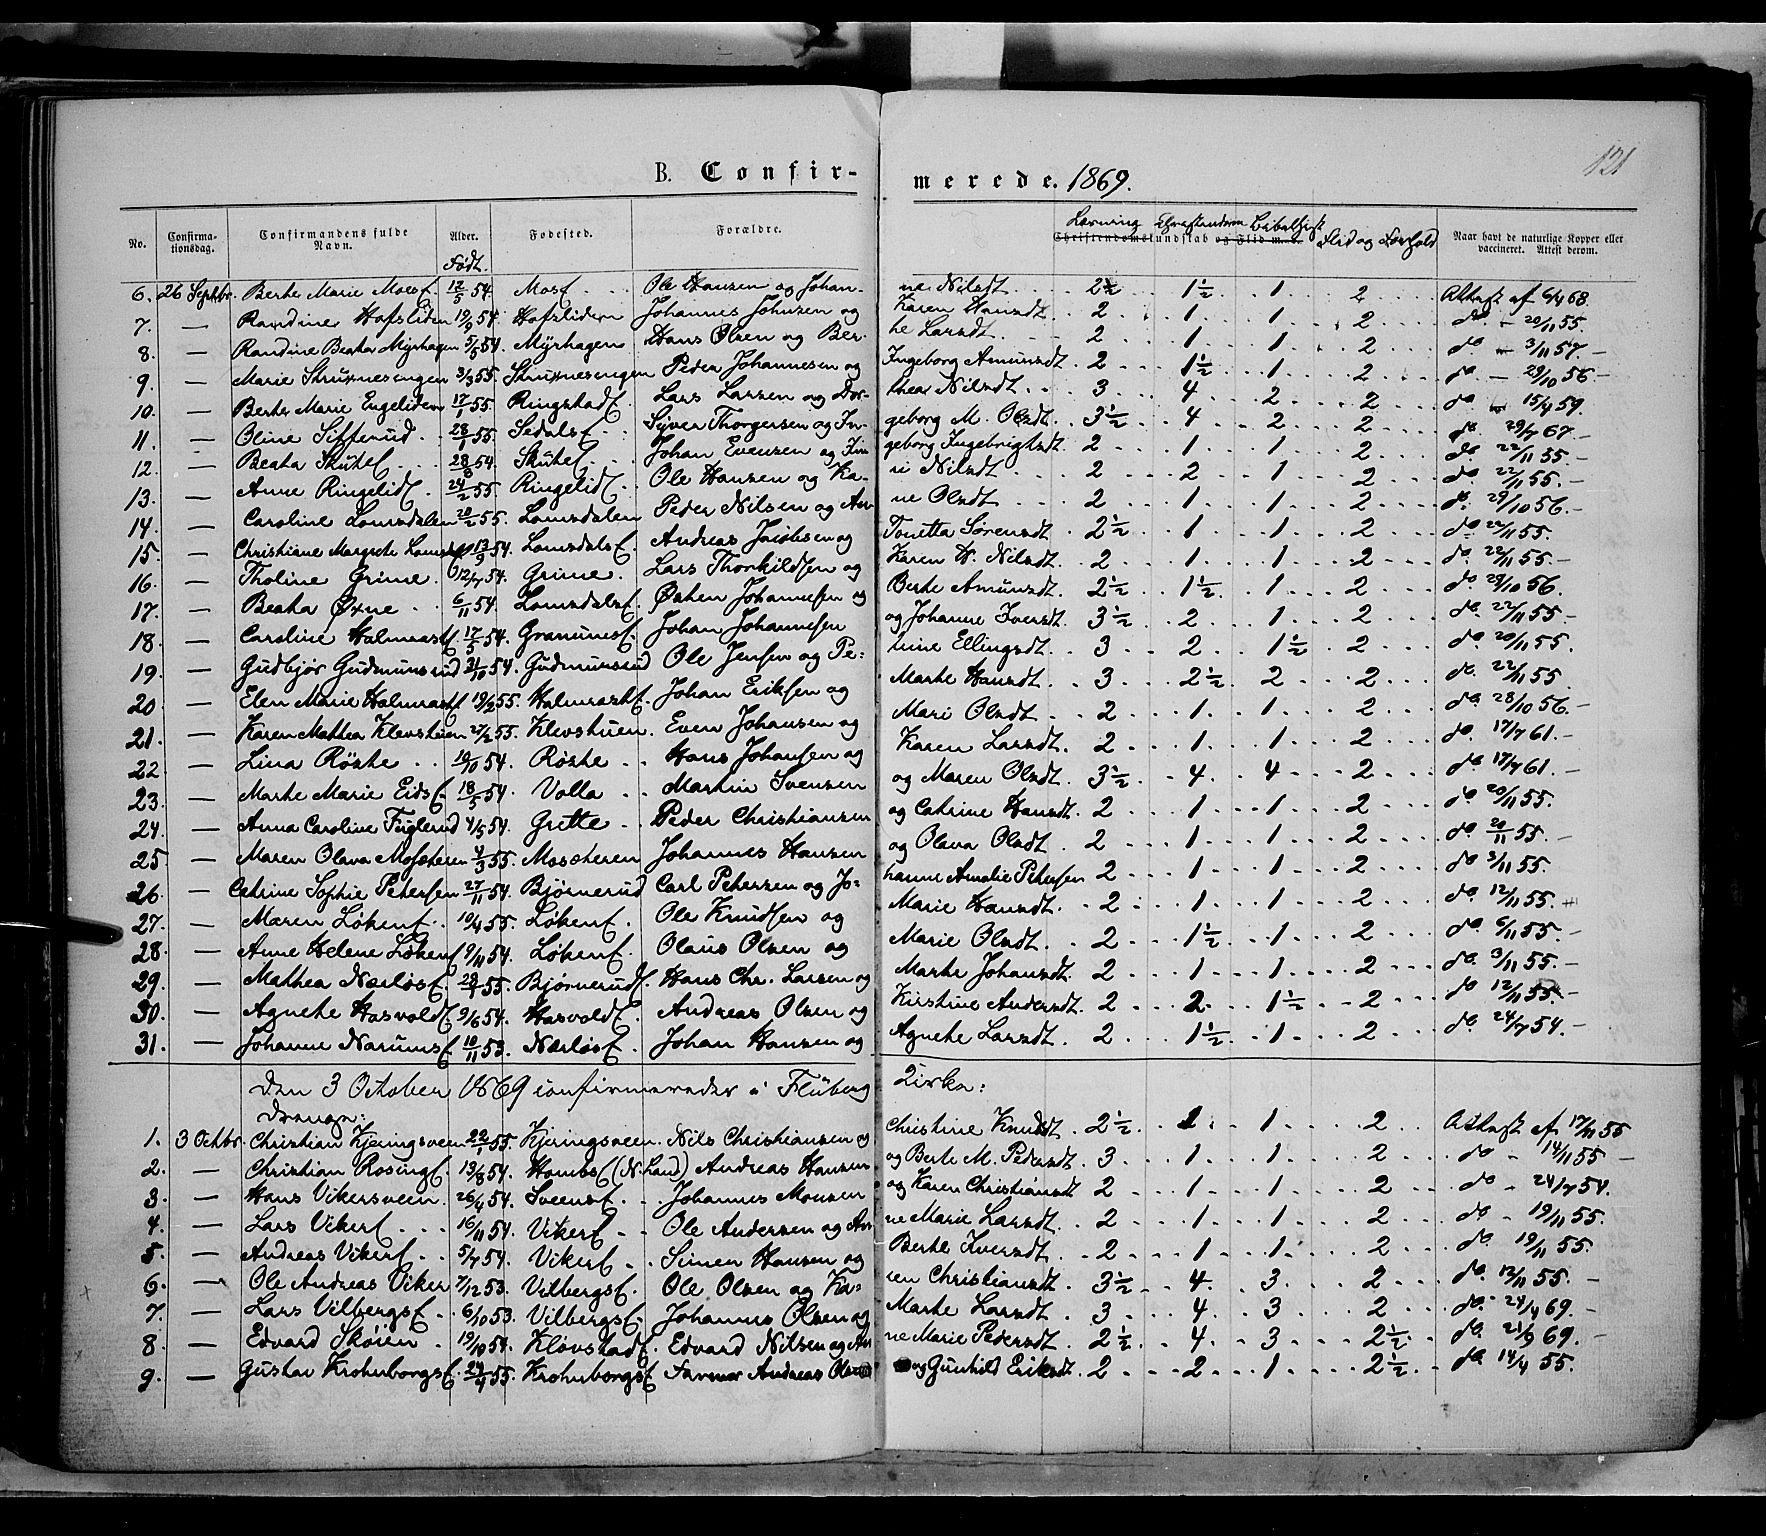 121
B. Confirmerede. 1869.
No. Confirmationsdag. Confirmandens fulde Navn. Alder. Født. Fødested. Forældre. Læsning Christendomskundskab og Flid m. v. Bibelhist Flid og Forhold Naar havt de naturlige Kopper eller vaccineret. Attest derom.
6. 26 Septbr. Berthe Marie Moe 12/5 54. Ole Hansen og Johanne Nilsdt 2 1½ 1 2 Attest af 6/4 68.
7. — Randine Hofsliden 19/9 54. Hofsliden Johannes Johnsen og Karen Hansdt 2 1 1 2 do - 20/11 55.
8. — Randine Beathe Myrhagen 5/5 54. Myrhagen Hans Olsen og Berthe Larsdt 2 1 1 2 do 3/11 57. —
9. — Marie Struxnesengen 3/3 55. Struxnesengen Peder Johannesen og Ingeborg Amundsdt 2 1½ 1 2 do - 29/10 56 —
10. — Berthe Marie Engeliden 17/1 55. Ringstad Lars Larsen og Dorthea Nilsdt 3 4 2 2 do 15/4 59.
11. — Oline Sifferud 28/1 55. Sedals Syver Thorgersen og Ingeborg M. Olsdt. 3½ 4 2 2 do 29/7 67. —
12. — Beatha Skute 28/8 54. Skute Johan Evensen og Ingeborg Ingebrigtsdt 2 1 1 2 do. 22/11 55.
13. — Anne Ringelid 24/2 55. Ringelid Ole Hansen og Kari Nilsdt 2 2 1 2 do. 22/11 55. —
14. — Caroline Lomsdalen 20/2 55. Lomsdalen Peder Nilsen og Anne Olsdt 2 1 1 2 do. 29/10 56. —
15. — Christiane Margrete 13/9 54. Lomsdals Andreas Jacobsen og Tonetta Sørensdt 2½ 1 1 2 do. 22/11 55.
16. — Tholine Grime. 12/7 54. Grime. Lars Thorkildsen og Karen H. Nilsdt 2 1 1 2 do. 22/11 55. —
17. — Beatha Øxne 6/11 54. Lomsdals Østen Johannesen og Berte Amundsdt 2½ 1½ 1 2 do. 29/10 56.
18. — Caroline Halmrast 17/5 54. Granumes Johan Johannesen og Johanne Iversdt. 3½ 2 1 2 do. 22/11 55. —
19. — Gudbjør Gudmunsrud 31/10 54. Gudmunsrud Ole Jensen og Peline Ellingsdt 3 2 1½ 2 do. 20/11 55.
20 — Elen Marie Halmrast 19/2 55. Halmrast Johan Eriksen og Marthe Hansdt. 3 2½ 2 2 do. 22/11 55.
21. — Karen Mathea Klevstuen 27/2 55. Klevstuen. Even Johansen og Mari Olsdt 2 1 1 2 do. 28/10 56. —
22 — Lina Røste 19/10 54. Røste Hans Johansen og Karen Larsdt. 2 1 1 2 do. 17/7 61. —
23. — Marthe Marie Eids 18/5 54. Volla Martin Svensen og Maren Olsdt 3½ 4 4 2 do. 17/7 61. —
24. — Anna Caroline Fuglerud 4/5 54. Grette Peder Christiansen og Catrine Hansdt 2 1 1 2 do 20/11 55.
25 — Maren Olava Moseteren 4/3 55. Moseteren Johannes Hansen og Olava Olsdt 2 1 1 2 do 20/11 55. —
26. — Catrine Sophie Petersen 27/11 54. Bjørnerud Carl Petersen og Johanne Amalie Petersen 2 1 1 2 do 3/11 55.
27. — Maren Løken 10/4 55. Løken Ole Knudsen og Marie Hansdt. 2 1 1 2 do. 12/11 55. —
28. — Anne Helene Løken 9/11 54. Løken Olaus Olsen og Marie Olsdt. 2 1½ 1 2 do. 6/11 55. —
29. — Mathea Nærløs 28/1 55. Bjørnerud Hans Chr. Larsen og Marthe Johansdt. 2 1 1 2 do 3/11 55. —
30. — Agnethe Hasvold 9/6 54. Hasvold Andreas Olsen og Kirstine Andersdt 2 2 1½ 2 do 12/11 55. —
31. — Johanne Narums 10/11 53. Nærløs Johan Hansen og Agnethe Larsdt. 2 1½ 1 2 do. 24/7 54. —
Den 3 October 1869 confirmerede i Fluberg Kirke:
Drenge:
1. 3 Octbr. Christian Kjeringsveen 22/1 55. Kjeringsveen. Nils Christiansen og Christine Knudsdt 2½ 1 1 2 Attest af 17/11 55
2. — Christian Rosing 13/8 54. Hombs (N. Land) Andreas Hansen og Berte M. Pedersdt. 3 1 1 2 do - 14/11 55 —
3. — Hans Vikersveen. 26/4 54. Sveens Johannes Monsen og Karen Christiansdt 2 1 1 2 do - 24/7 54.
4. — Lars Viker 16/11 54. Viker Ole Andersen og Anne Marie Larsdt 2 1 1 2 do - 19/11 55.
5. — Andreas Viker 5/7 54. Viker Simen Hansen og Berthe Iversdt 2 1 1 2 do. 19/11 55.
6. — Ole Andreas Viker 7/12 53. Vilbergs Ole Olsen og Karen Christiansdt 3½ 4 3 2 do. 12/11 55. —
7. — Lars Vilbergs 6/10 53. Vilbergs Johannes Olsen og Marthe Larsdt 3 4 3 2 do. 24/4 69. —
8 — Edvard Skøien 19/10 54. Kløvstad Edvard Nilsen og Anne Marie Pedersdt 2½ 4 3 2½ do. 21/9 69. —
9. — Gustav Krohnborgs 24/4 55. Krohnborgs Farver Andreas Olsen og Gunhild Eriksdt 2 2 1 2½ do. 14/4 55.